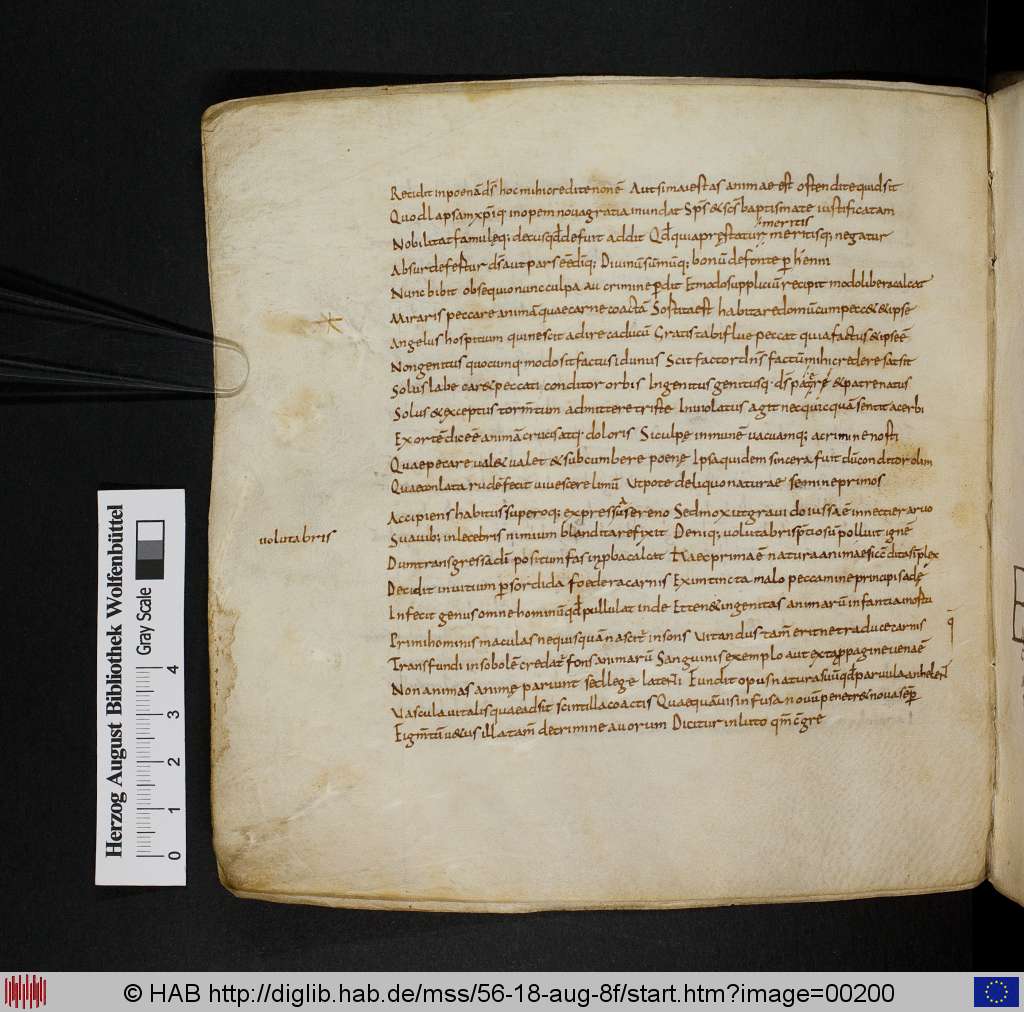 Recidit inpoenā d̄s hoc mihi credite non ē Aut si maiestas animae est ostendite quid sit
Quod lapsam xp̄iq; inopem noua gratia inundat Sp̄s & sc̄s baptismate iustificatam
meritis
Nobilitat famulęq; decus qđ defuit addit Qđ quia pręstatur meritisq; negatur
Absurde fertur d̄s aut pars eē diq; Diuinū sūmūq; bonū de fonte phenni
Nunc bibit obsequio nunc culpa au crimine pdit Et modo suppliciū recipit modo libera calcat
Miraris peccare animā quae carne coactā Sortita est habitare domū cum pecc& & ipse
Angelus hospitium qui nescit adire caducū Gratis tabifluę peccat quia factus & ipse ē
Non genitus quocumq; modo sit factus id unius Scit factor dn̄s factū mihi credere sat sit
Solus labe car& peccati conditor orbis Ingenitus genitusq; d̄s & patre natus
Solus & exceptus torm̄tum admittere triste Inuiolatus agit nec quicquā sentit acerbi
Exortē dicē ē animā crucis atq; doloris Si culpę inmunē uacuamq; a crimine nosti
Quae pecare ual& ualet & subcumbere poenę Ipsa quidem sincera fuit dū conditor olim
Quae conlata rudē fecit uiuescere limū Utpote de liquo naturae semine primos
Accipiens habitus superoq; expressū sereno Sed mox ut graui do iussa ē innectier aruo
uolutabris
Suauib; inlecebris nimium blandita refixit Deniq; uolutabris p̄tiosū polluit ignē
Dum transgressa dī positum fas inpba calcat Haec prima ē natura animae sic cōdita simplex
Decidit inuitium p sordida foedera carnis Exin tincta malo peccamine principis adę
Infecit genus omne hominū qđ pullulat inde Et ten& ingenitas animarū infantia
Primi hominis maculas nequisquā nascit̄ insons Uitandus tam̄ erit ne traduce carnis
Transfundi insobolē credat̄ fons animarū Sanguinis exemplo aut pagine uenaē
Non animas animę pariunt sed lege latenti Fundit opus natura suū qđ paruula anhelent
Uascula uitalis quae adsit scintilla coactis Quae quāuis infusa nouū penetr& noua sēp
Figm̄tū u&us illa tam̄ decrimine auorum Dicitur inluto qm̄
Herzog August Bibliothek Wolfenbüttel
Gray Scale
0 1 2 3 4
© HAB http://diglib.hab.de/mss/56-18-aug-8f/start.htm?image=00200